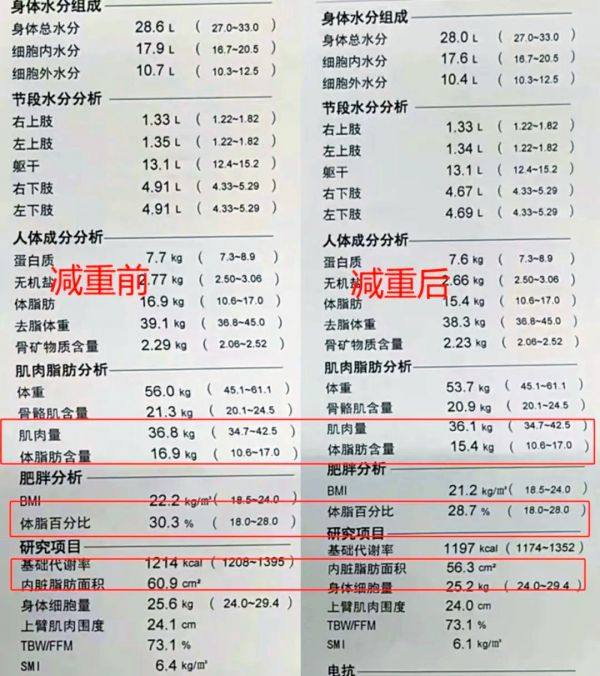 身体水分组成
身体总水分 28.6 L ( 27.0~33.0 )
细胞内水分 17.9 L ( 16.7~20.5 )
细胞外水分 10.7 L ( 10.3~12.5 )
节段水分分析
右上肢 1.33 L ( 1.22~1.82 )
左上肢 1.35 L ( 1.22~1.82 )
躯干 13.1 L ( 12.4~15.2 )
右下肢 4.91 L ( 4.33~5.29 )
左下肢 4.91 L ( 4.33~5.29 )
人体成分分析
蛋白质 7.7 kg ( 7.3~8.9 )
无机盐 2.77 kg ( 2.50~3.06 )
减重前
体脂肪 16.9 kg ( 10.6~17.0 )
去脂体重 39.1 kg ( 36.8~45.0 )
骨矿物质含量 2.29 kg ( 2.06~2.52 )
肌肉脂肪分析
体重 56.0 kg ( 45.1~61.1 )
骨骼肌含量 21.3 kg ( 20.1~24.5 )
肌肉量 36.8 kg ( 34.7~42.5 )
体脂肪含量 16.9 kg ( 10.6~17.0 )
肥胖分析
BMI 22.2 kg/m² ( 18.5~24.0 )
体脂百分比 30.3 % ( 18.0~28.0 )
研究项目
基础代谢率 1214 kcal ( 1208~1395 )
内脏脂肪面积 60.9 cm²
身体细胞量 25.6 kg ( 24.0~29.4 )
上臂肌肉围度 24.1 cm
TBW/FFM 73.1 %
SMI 6.4 kg/m²
身体水分组成
身体总水分 28.0 L ( 27.0~33.0 )
细胞内水分 17.6 L ( 16.7~20.5 )
细胞外水分 10.4 L ( 10.3~12.5 )
节段水分分析
右上肢 1.33 L ( 1.22~1.82 )
左上肢 1.34 L ( 1.22~1.82 )
躯干 13.1 L ( 12.4~15.2 )
右下肢 4.67 L ( 4.33~5.29 )
左下肢 4.69 L ( 4.33~5.29 )
人体成分分析
蛋白质 7.6 kg ( 7.3~8.9 )
无机盐 2.66 kg ( 2.50~3.06 )
减重后
体脂肪 15.4 kg ( 10.6~17.0 )
去脂体重 38.3 kg ( 36.8~45.0 )
骨矿物质含量 2.23 kg ( 2.06~2.52 )
肌肉脂肪分析
体重 53.7 kg ( 45.1~61.1 )
骨骼肌含量 20.9 kg ( 20.1~24.5 )
肌肉量 36.1 kg ( 34.7~42.5 )
体脂肪含量 15.4 kg ( 10.6~17.0 )
肥胖分析
BMI 21.2 kg/m² ( 18.5~24.0 )
体脂百分比 28.7 % ( 18.0~28.0 )
研究项目
基础代谢率 1197 kcal ( 1174~1352 )
内脏脂肪面积 56.3 cm²
身体细胞量 25.2 kg ( 24.0~29.4 )
上臂肌肉围度 24.0 cm
TBW/FFM 73.1 %
SMI 6.1 kg/m²
电抗